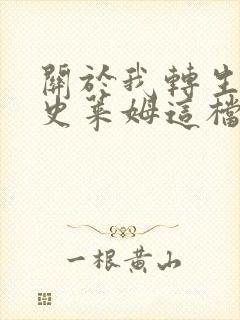 關於我轉生
史萊姆這檔
一根黃山